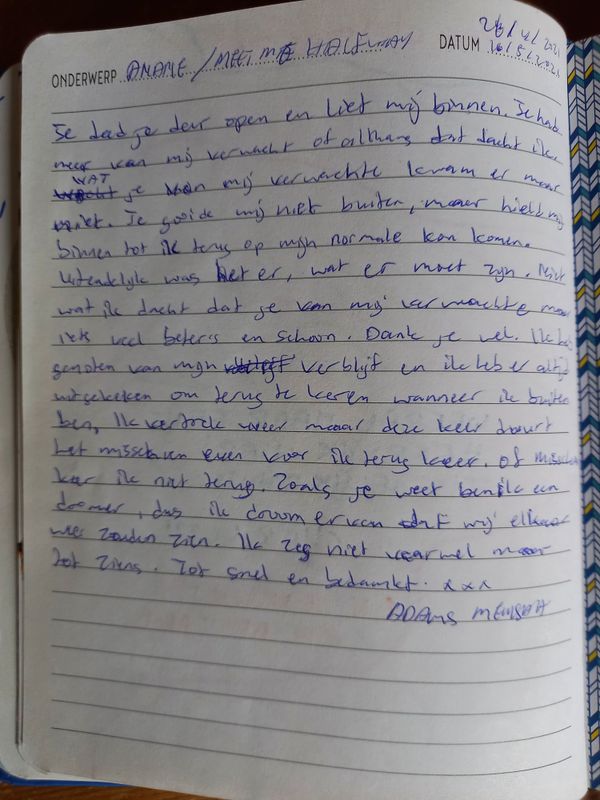 ONDERWERP ANAME / MEET ME HALFWAY DATUM
Je deed je deur open en liet mij binnen. Je had
meer van mij verwacht of althans dat dacht ik.
WAT
je van mij verwachte kwam er maar
niet. Je gooide mij niet buiten, maar hield mij
binnen tot ik terug op mijn normale kon komen.
Uitendelijk was het er, wat er moet zijn. Niet
wat ik dacht dat je van mij verwachtte maar
iets veel beters en schoon. Dank je wel. Ik heb
genoten van mijn verblijf en ik heb er altijd
uitgekeken om terug te keren wanneer ik buiten
ben, Ik vertrok weer maar deze keer duurt
het misschien even voor ik terug keer. of misschien
keer ik niet terug. Zoals je weet ben ik een
dromer, dus ik droom ervan dat wij elkaar
weer zouden zien. Ik zeg niet vaarwel maar
tot ziens. Tot snel en bedankt. xxx
ADAMS MENSAH